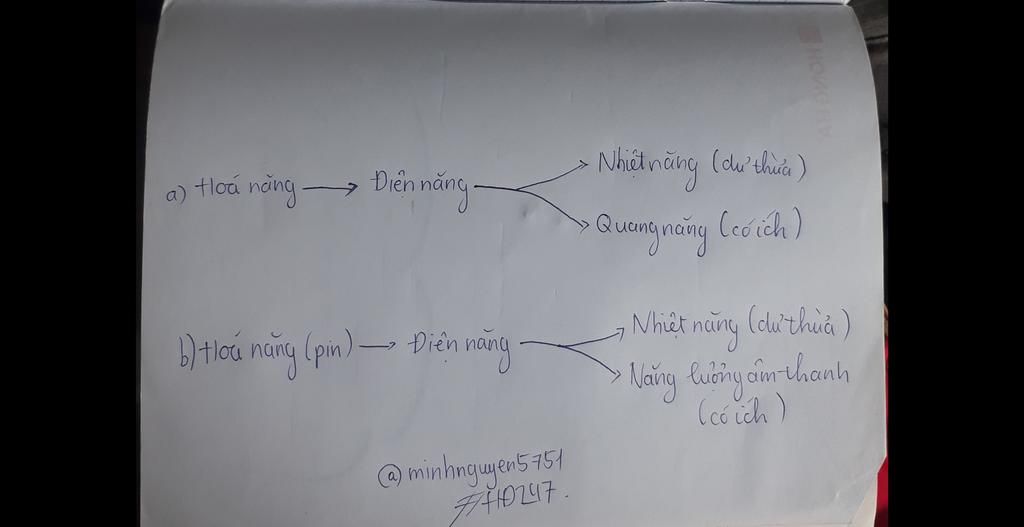 HONG HA
a) Hoá năng → Điện năng → Nhiệt năng (dư thừa)
Quang năng (có ích)
b) Hoá năng (pin) → Điện năng → Nhiệt năng (dư thừa)
Năng lượng âm thanh
(có ích)
@minhnguyen5751
#HĐ247.